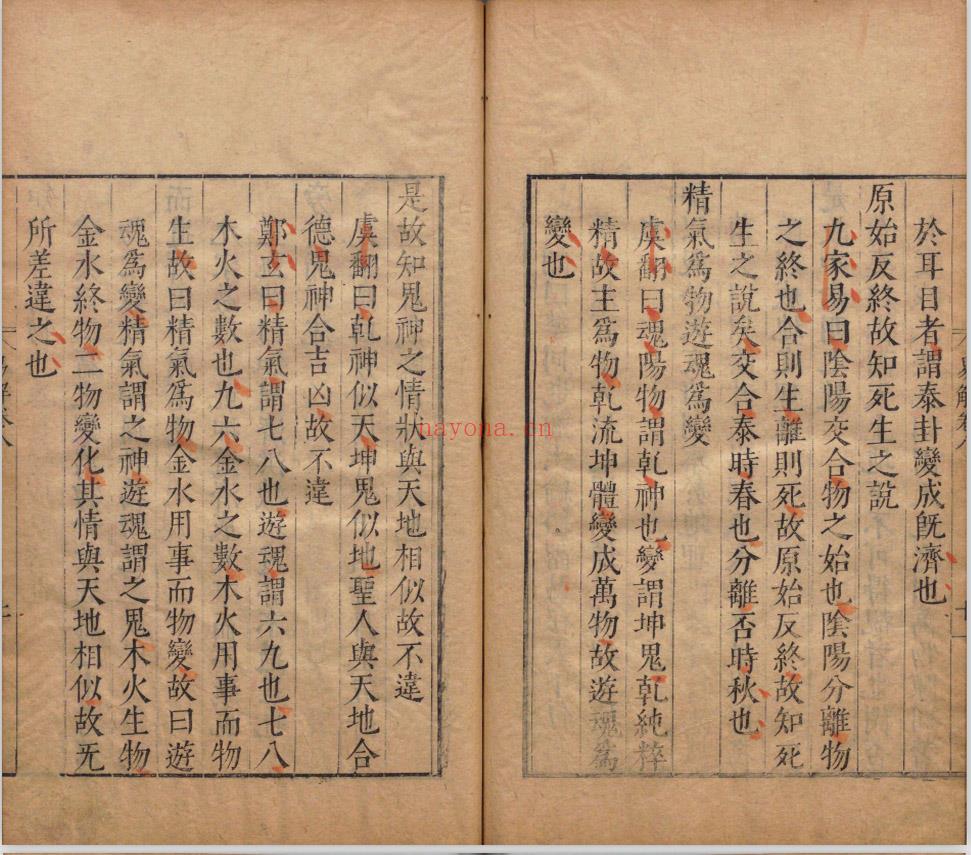 於耳目者謂泰卦變成旣濟也
原始反終故知死生之說
九家易曰陰陽交合物之始也陰陽分離物
之終也合則生離則死故原始反終故知死
生之說矣交合泰時春也分離否時秋也
精氣爲物遊魂爲變
虞翻曰魂陽物謂乾神也變謂坤鬼乾純粹
精故主爲物乾流坤體變成萬物故遊魂爲
變也
是故知鬼神之情狀與天地相似故不違
虞翻曰乾神似天坤鬼似地聖人與天地合
德鬼神合吉凶故不違
鄭玄曰精氣謂七八也遊魂謂六九也七八
木火之數也九六金水之數木火用事而物
生故曰精氣爲物金水用事而物變故曰遊
魂爲變精氣謂之神遊魂謂之鬼木火生物
金水終物二物變化其情與天地相似故无
所差違之也
nayona.cn